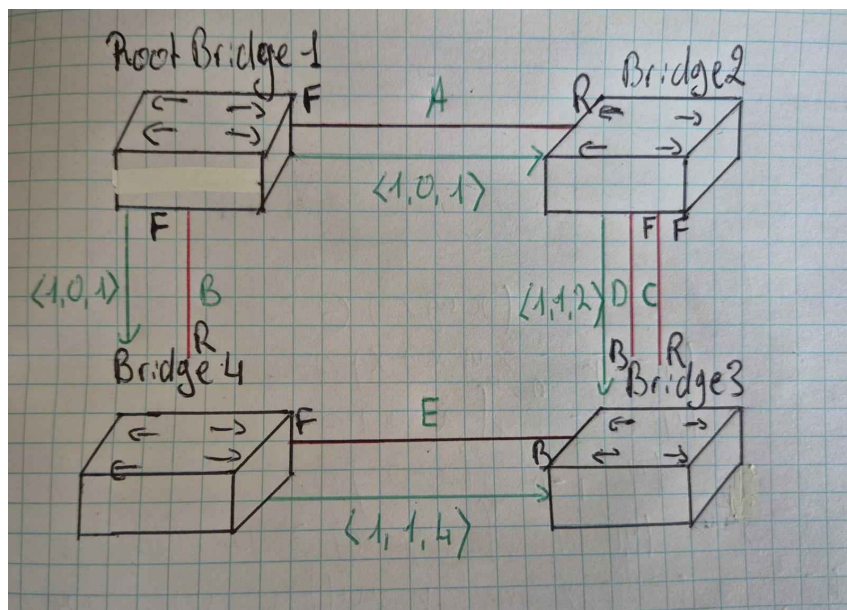 Root Bridge 1
Bridge 2
F
A
R
⟨1,0,1⟩
F
F
F
⟨1,0,1⟩
B
⟨1,1,2⟩
D
C
R
B
R
Bridge 4
Bridge 3
F
E
B
⟨1,1,4⟩